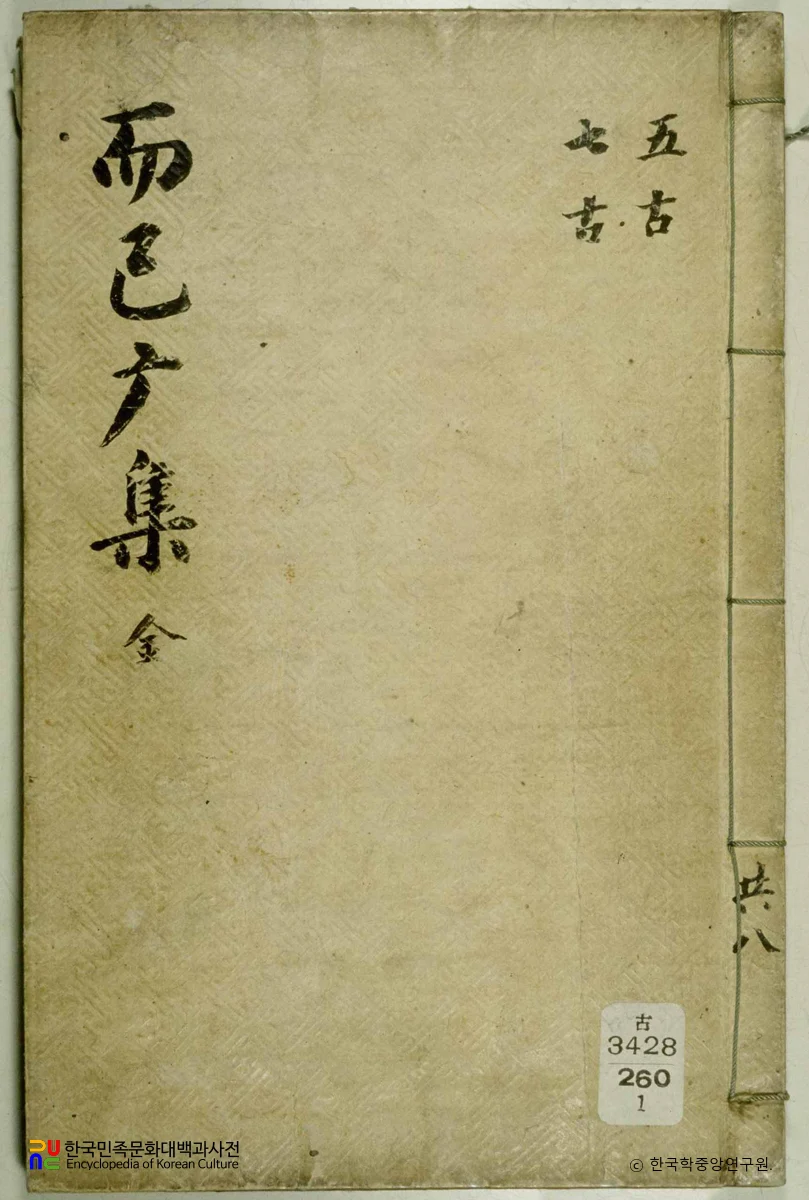 五古
七古
而已广集 金
共八
古
3428
260
1
한국민족문화대백과사전
Encyclopedia of Korean Culture
ⓒ 한국학중앙연구원.